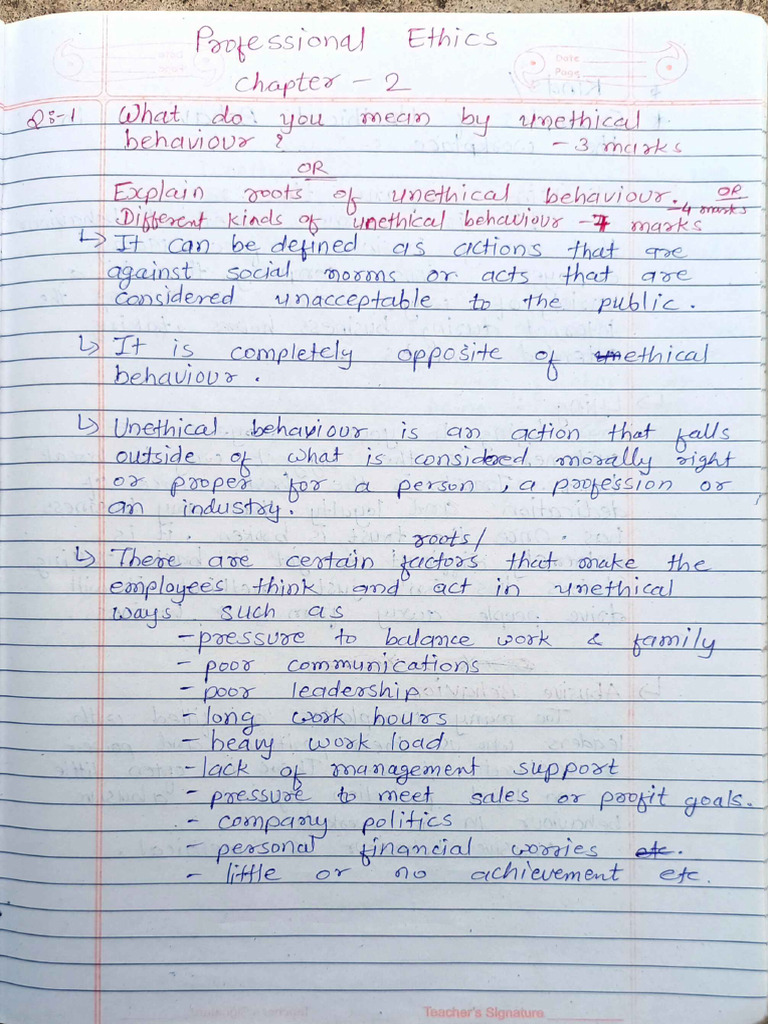 Professional Ethics
Date
Page
Chapter - 2
Q:-1 What do you mean by unethical
behaviour ? - 3 marks
OR
Explain roots of unethical behaviour. - 4 marks OR
Different kinds of unethical behaviour - 7 marks
↳ It can be defined as actions that are
against social norms or acts that are
considered unacceptable to the public.
↳ It is completely opposite of ethical
behaviour.
↳ Unethical behaviour is an action that falls
outside of what is considered morally right
or proper for a person, a profession or
an industry.
roots/
↳ There are certain factors that make the
employees think and act in unethical
ways such as
- pressure to balance work & family
- poor communications
- poor leadership
- long work hours
- heavy work load
- lack of management support
- pressure to meet sales or profit goals.
- company politics
- personal financial worries etc.
- little or no achievement etc.
Teacher's Signature